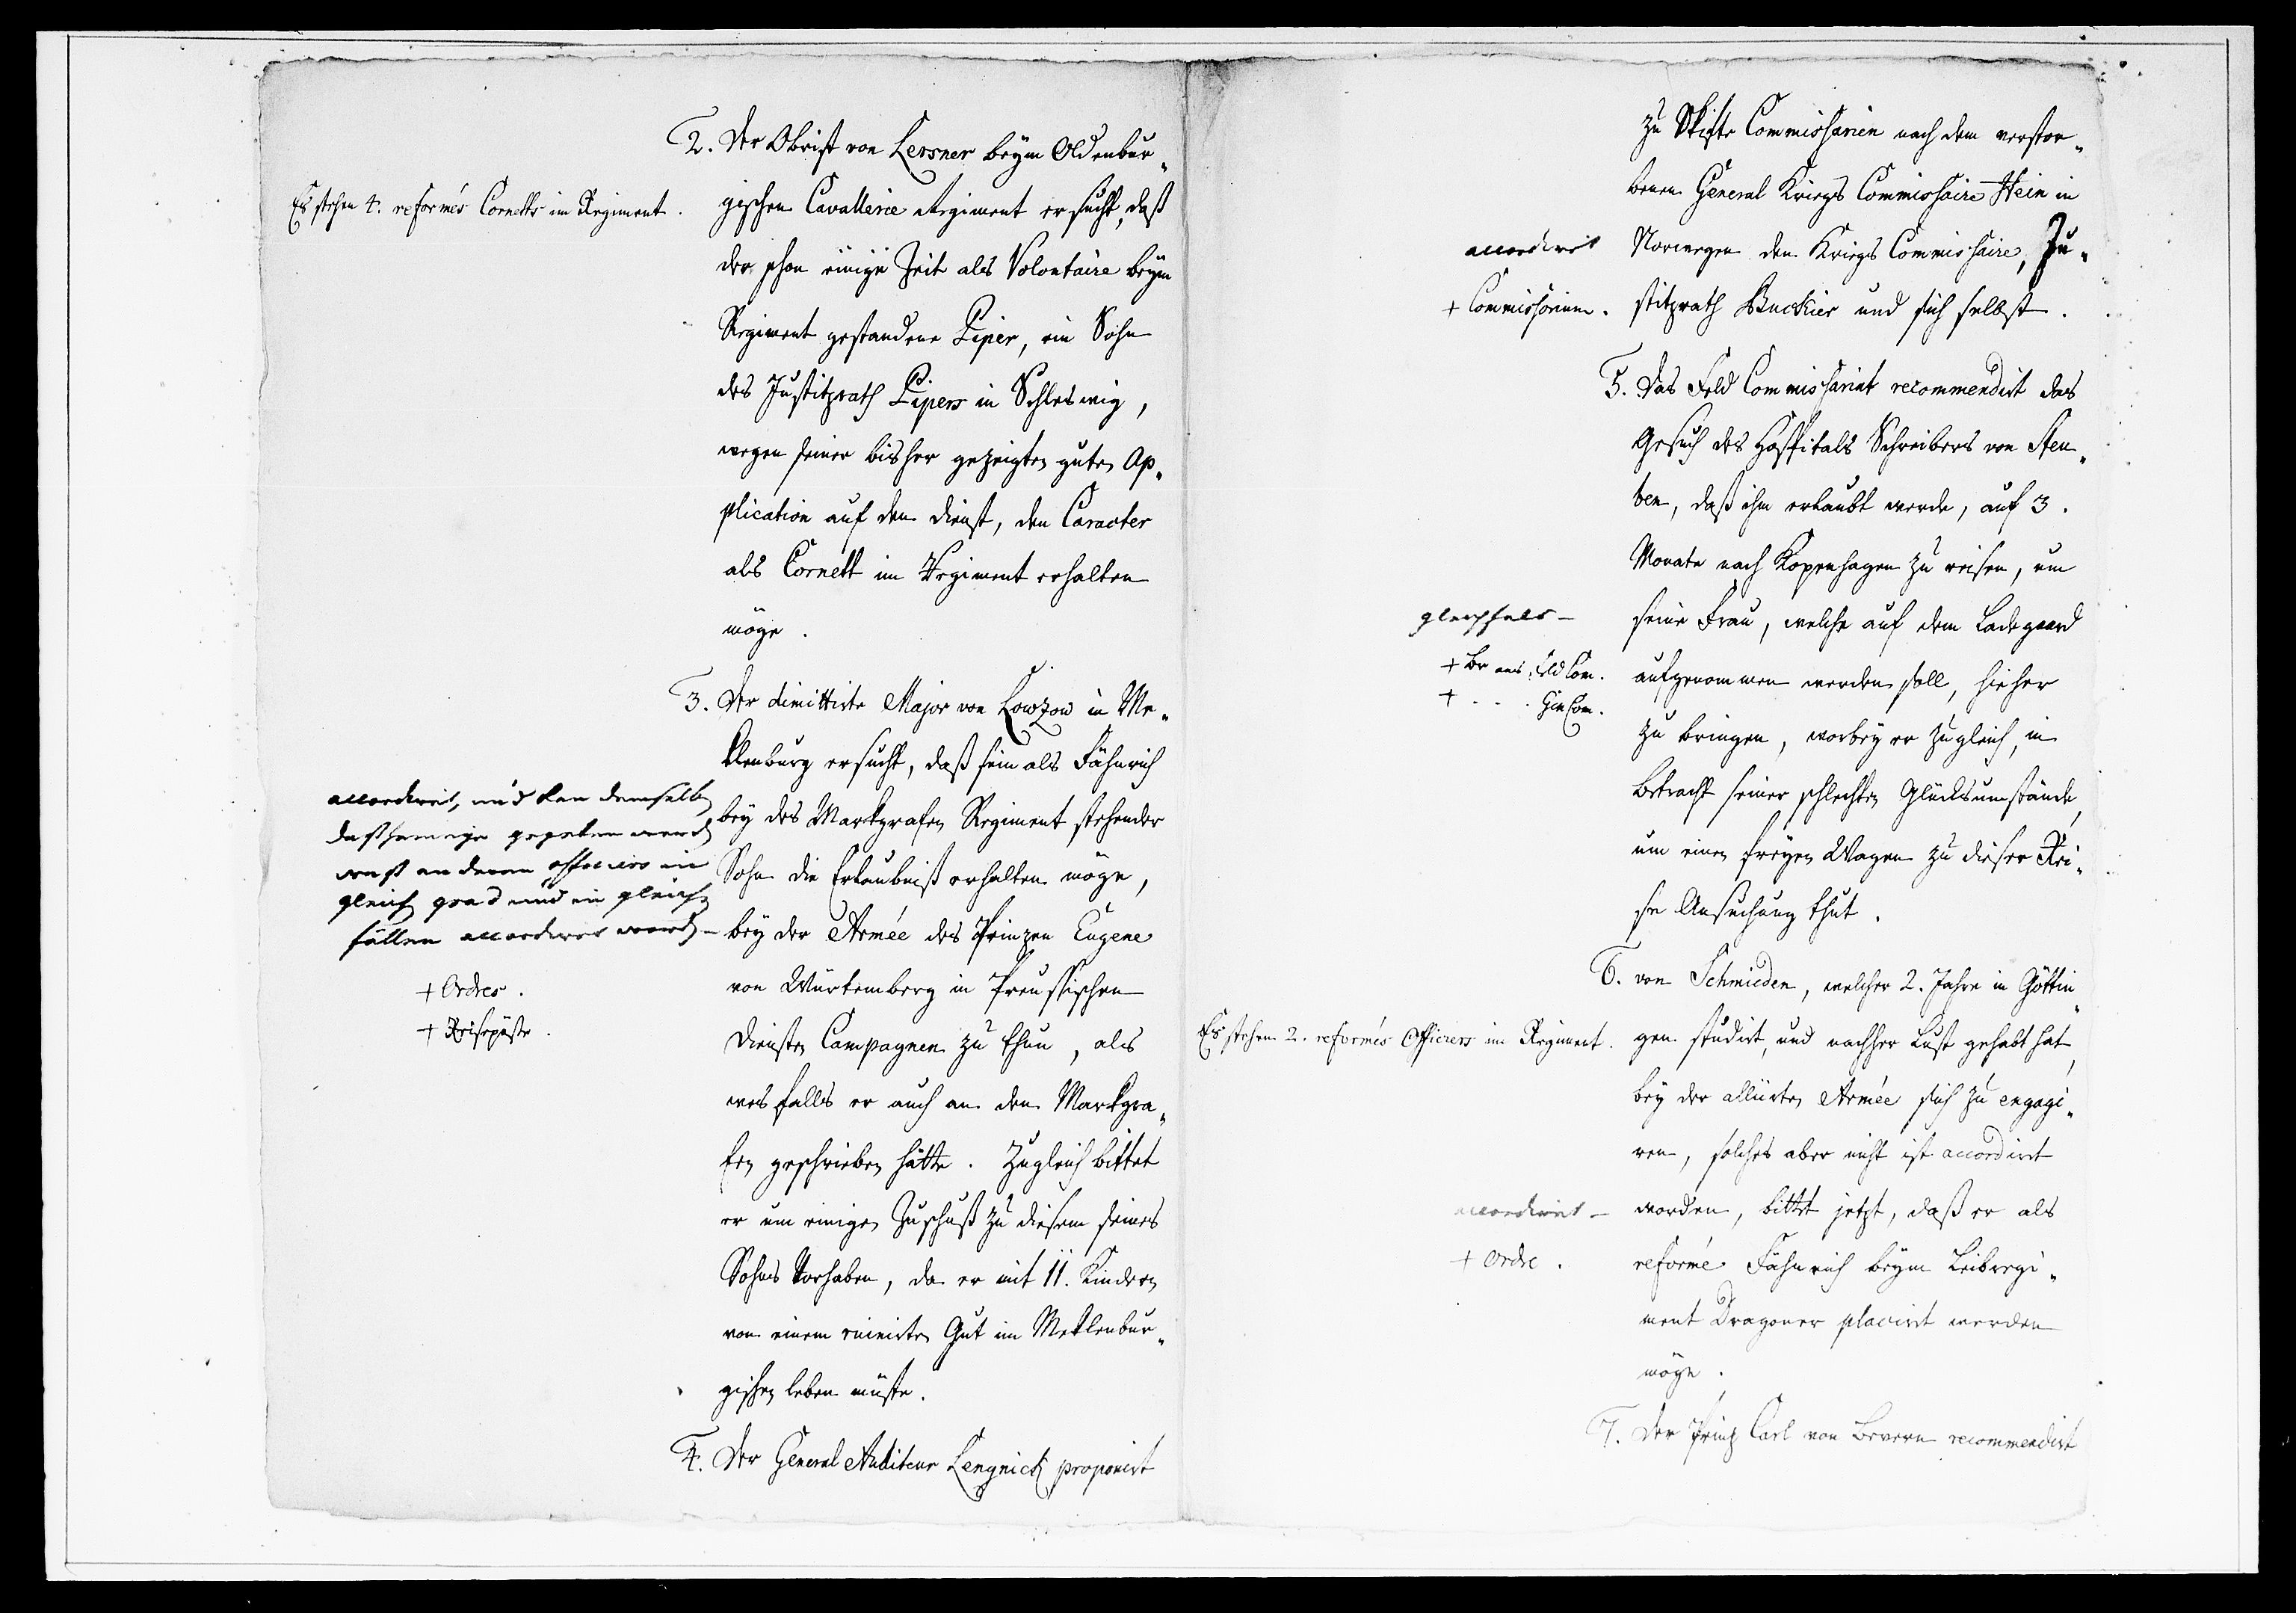 2. Der Obrist von Lersner beym Oldenbur„
Es stehen 4. reformés Cornetts im Regiment.
gischen Cavallerie Regiment ersucht, daß
der schon einige Zeit als Volontaire beym
Regiment gestandene Piper, ein Sohn
des Justitzrath Pipers in Schleswig,
wegen seiner bisher gezeigten guten Ap„
plication auf den Dienst, den Caracter
als Cornett im Regiment erhalten
möge.
3. Der dimittirte Major von Lowzow in Me„
klenburg ersucht, daß sein als Fähnrich
bey des Markgrafen Regiment stehender
Sohn die Erlaubniß erhalten möge,
bey der Armée des Prinzen Eugene
von Würtemberg in Preussischen
Diensten Campagnen zu thun, als
wesfalls er auch an den Markgra„
fen geschrieben hätte. Zugleich bittet
er um einigen Zuschuß zu diesem seines
Sohns Vorhaben, da er mit 11. Kindern
von einem ruinirten Gut im Meklenbur„
gischen leben müste.
accordiret, und kan demselben
dasjenige gegeben werden
was anderen officiers in
gleich grad und in gleichen
fällen accordiret worden –
+ Ordres.
+ Reisepäste.
4. Der General Auditeur Lengnick proponirt
zu Skifte Commissarien nach dem verstor„
benen General Kriegs Commissaire Hein in
Norwegen den Kriegs Commissaire, Ju„
stitzrath Buckier und sich selbst.
accordiret
+ Commissorium.
5. Das Feld Commissariat recommendirt das
Gesuch des Hospitals Schreibers von Sten„
ben, daß ihm erlaubt werde, auf 3.
Monate nach Kopenhagen zu reisen, um
seine Frau, welche auf dem Ladegaard
aufgenommen werden soll, hieher
zu bringen, worbey er zugleich, in
Betracht seiner schlechten Glücksumstände,
um einen freyen Wagen zu dieser Rei„
se Ansuchung thut.
gleichfals –
+ Br ans Feld Com.
+ . . . Gen Com.
6. von Schmieden, welcher 2. Jahre in Göttin„
Es stehen 2. reformés Officiers im Regiment.
gen studirt, und nachher Lust gehabt hat,
bey der alliirten Armée sich zu engagi„
ren, solches aber nicht ist accordirt
worden, bittet jetzt, daß er als
reformé Fähnrich beym Leibregi„
ment Dragoner placirt werden
möge.
accordiret –
+ Ordre.
7. Der Prinz Carl von Bevern recommendirt